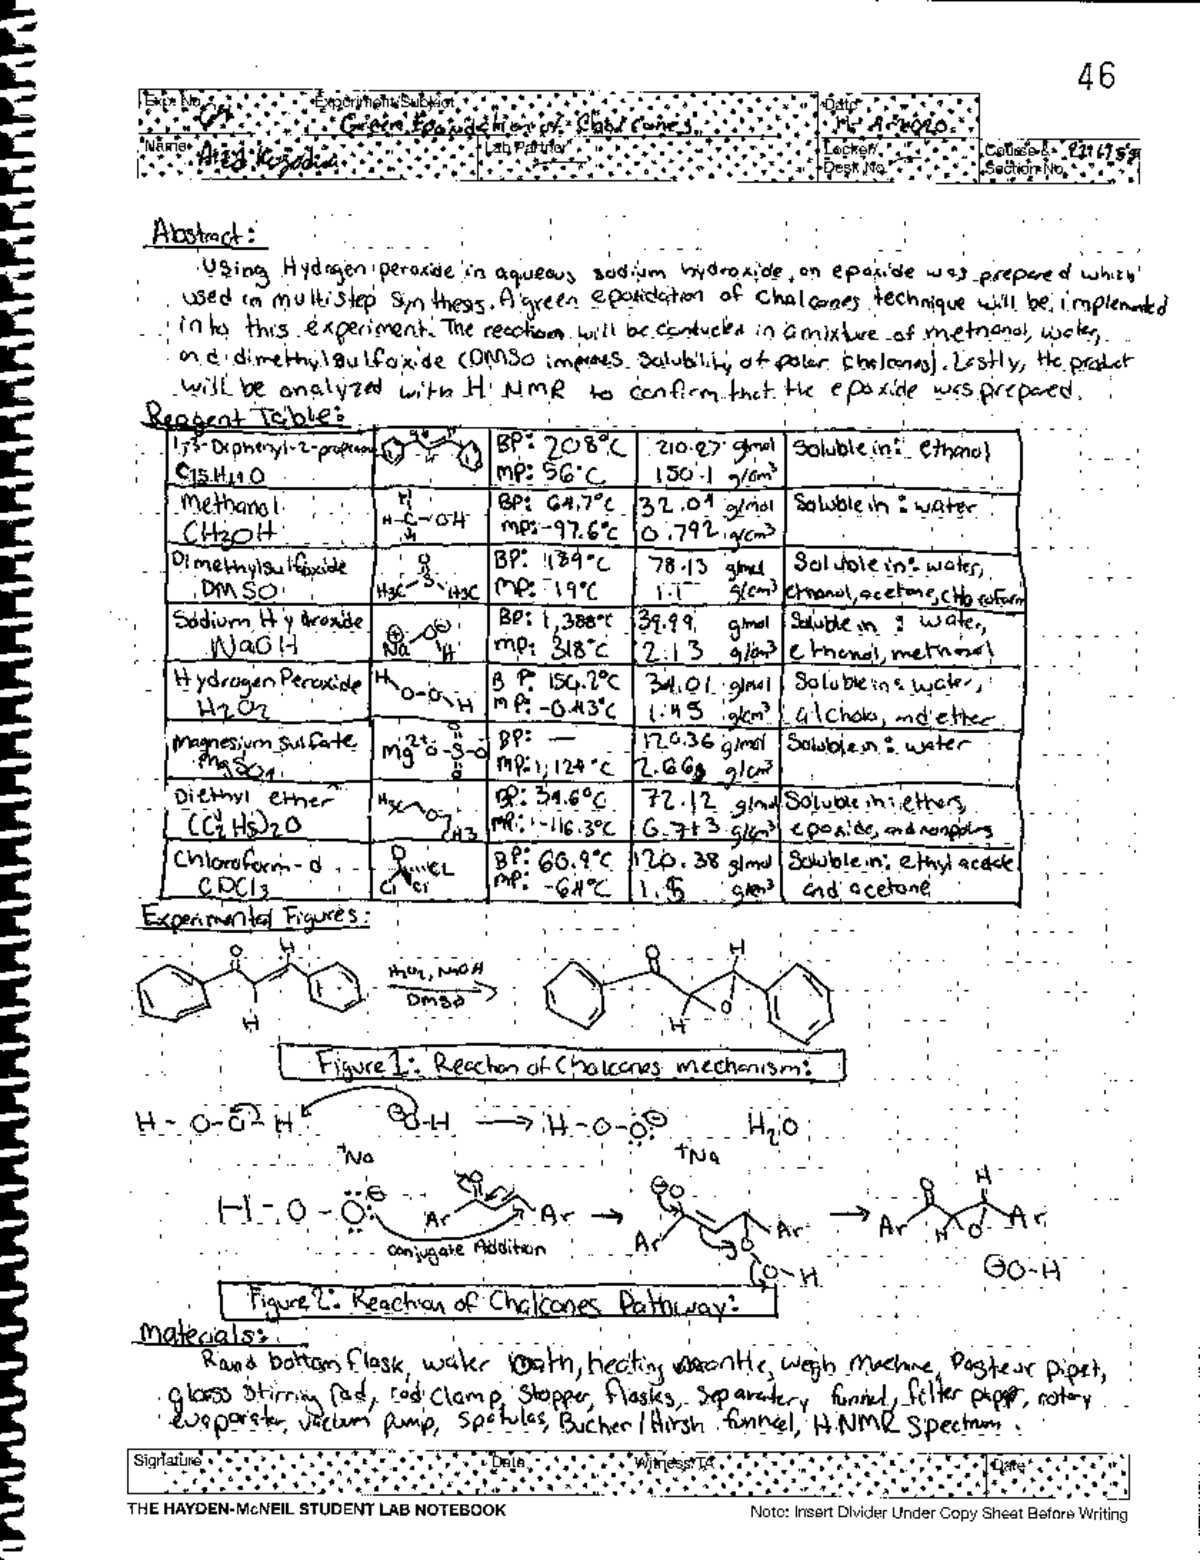 46
Exp. No. Experiment/Subject Date
Green Epoxidation of Chalcones
Name Lab Partner Locker/ Desk No. Course & Section No.
Abstract:
Using Hydrogen peroxide in aqueous sodium hydroxide, an epoxide was prepared which
used in multistep synthesis. A green epoxidation of Chalcones technique will be implemented
into this experiment. The reaction will be conducted in a mixture of methanol, water,
and dimethylsulfoxide (DMSO improves solubility of polar chalcones). Lastly, the product
will be analyzed with H' NMR to confirm that the epoxide was prepared.
Reagent Table:
1,3-Diphenyl-2-propenone BP: 208°C 210.27 g/mol Soluble in: ethanol
C15H14O MP: 56°C 150.1 g/cm³
Methanol H-C-OH BP: 64.7°C 32.04 g/mol Soluble in: water
CH3OH MP: -97.6°C 0.792 g/cm³
Dimethylsulfoxide BP: 189°C 78.13 g/mol Soluble in: water,
DMSO H3C S H3C MP: 19°C 1.1 g/cm³ ethanol, acetone, chloroform
Sodium Hydroxide BP: 1,388°C 39.99 g/mol Soluble in: water,
NaOH Na O H MP: 318°C 2.13 g/cm³ ethanol, methanol
Hydrogen Peroxide H BP: 150.2°C 34.01 g/mol Soluble in: water,
H2O2 O-O H MP: -0.43°C 1.45 g/cm³ alchols, and ether
Magnesium sulfate BP: — 120.36 g/mol Soluble in: water
MgSO4 Mg2+ MP: 1,124°C 2.66 g/cm³
Diethyl ether H3C O BP: 34.6°C 72.12 g/mol Soluble in: ethers,
(C2H5)2O CH3 MP: -116.3°C 0.713 g/cm³ epoxide, and nonpolars
Chloroform-d BP: 60.9°C 120.38 g/mol Soluble in: ethyl acetate
CDCl3 MP: -64°C 1.5 g/cm³ and acetone
Experimental Figures:
O H H2O2, NaOH O H
DMSO O
H H
Figure 1: Reaction of Chalcones mechanism:
H-O-O-H O-H H-O-O H2O
+Na +Na
H-O-O Ar O Ar O Ar Ar O H Ar
conjugate Addition Ar O O-H H O O-H
Figure 2: Reaction of Chalcones Pathway:
Materials:
Round bottom flask, water bath, heating mantle, weigh machine, Pasteur pipet,
glass stirring rod, rod clamp, stopper, flasks, separatery funnel, filter paper, rotary
evaporator, vacuum pump, spatulas, Bucher/Hirsh funnel, H NMR Spectrum.
Signature Date Witness/TA Date
THE HAYDEN-McNEIL STUDENT LAB NOTEBOOK Note: Insert Divider Under Copy Sheet Before Writing